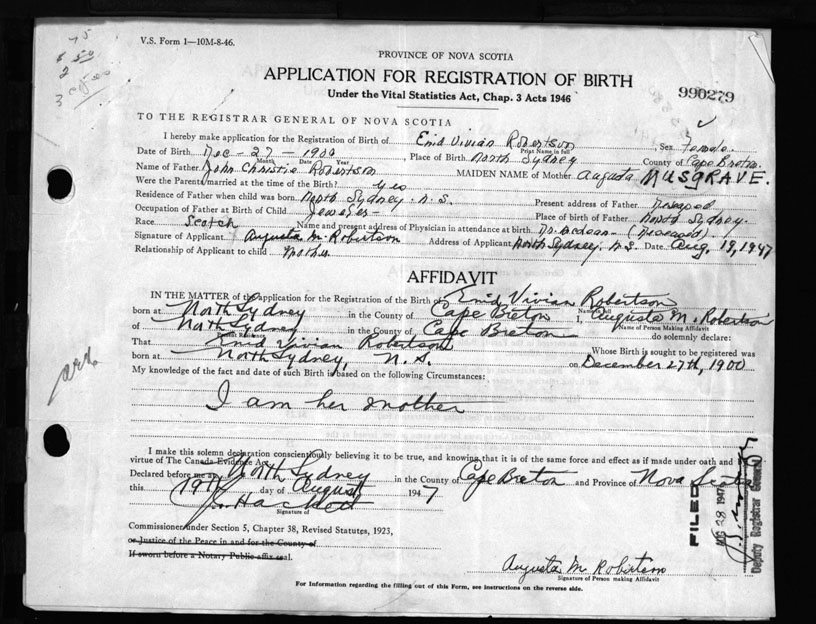 V.S. Form 1—10M-8-46.
PROVINCE OF NOVA SCOTIA
APPLICATION FOR REGISTRATION OF BIRTH
Under the Vital Statistics Act, Chap. 3 Acts 1946
990279
TO THE REGISTRAR GENERAL OF NOVA SCOTIA
I hereby make application for the Registration of Birth of Enid Vivian Robertson, Sex Female
Print Name in full
Date of Birth Dec - 27 - 1900, Place of Birth North Sydney County of Cape Breton
Month Date Year
Name of Father John Christie Robertson MAIDEN NAME of Mother Augusta MUSGRAVE.
Were the Parents married at the time of the Birth? yes
Residence of Father when child was born North Sydney. N.S. Present address of Father Deceased
Occupation of Father at Birth of Child Jeweler - Place of birth of Father North Sydney.
Race Scotch Name and present address of Physician in attendance at birth Dr. McLean - (Deceased)
Signature of Applicant Augusta M. Robertson Address of Applicant North Sydney, N.S. Date Aug. 19, 1947
Relationship of Applicant to child Mother
AFFIDAVIT
IN THE MATTER of the application for the Registration of the Birth of Enid Vivian Robertson
Name in full
born at North Sydney in the County of Cape Breton I, Augusta M. Robertson
Name of Person Making Affidavit
of North Sydney in the County of Cape Breton do solemnly declare:
That Enid Vivian Robertson Whose Birth is sought to be registered was
born at North Sydney, N.S. on December 27th, 1900
My knowledge of the fact and date of such Birth is based on the following Circumstances:
I am her mother
I make this solemn declaration conscientiously believing it to be true, and knowing that it is of the same force and effect as if made under oath and
virtue of The Canada Evidence Act.
Declared before me at North Sydney in the County of Cape Breton and Province of Nova Scotia
this 19th day of August 1947
Hackett
Signature of
Commissioner under Section 5, Chapter 38, Revised Statutes, 1923,
or Justice of the Peace in and for the County of
If sworn before a Notary Public affix seal.
FILED
AUG 28 1947
Deputy Registrar General
Augusta M. Robertson
Signature of Person making Affidavit
For Information regarding the filling out of this Form, see instructions on the reverse side.